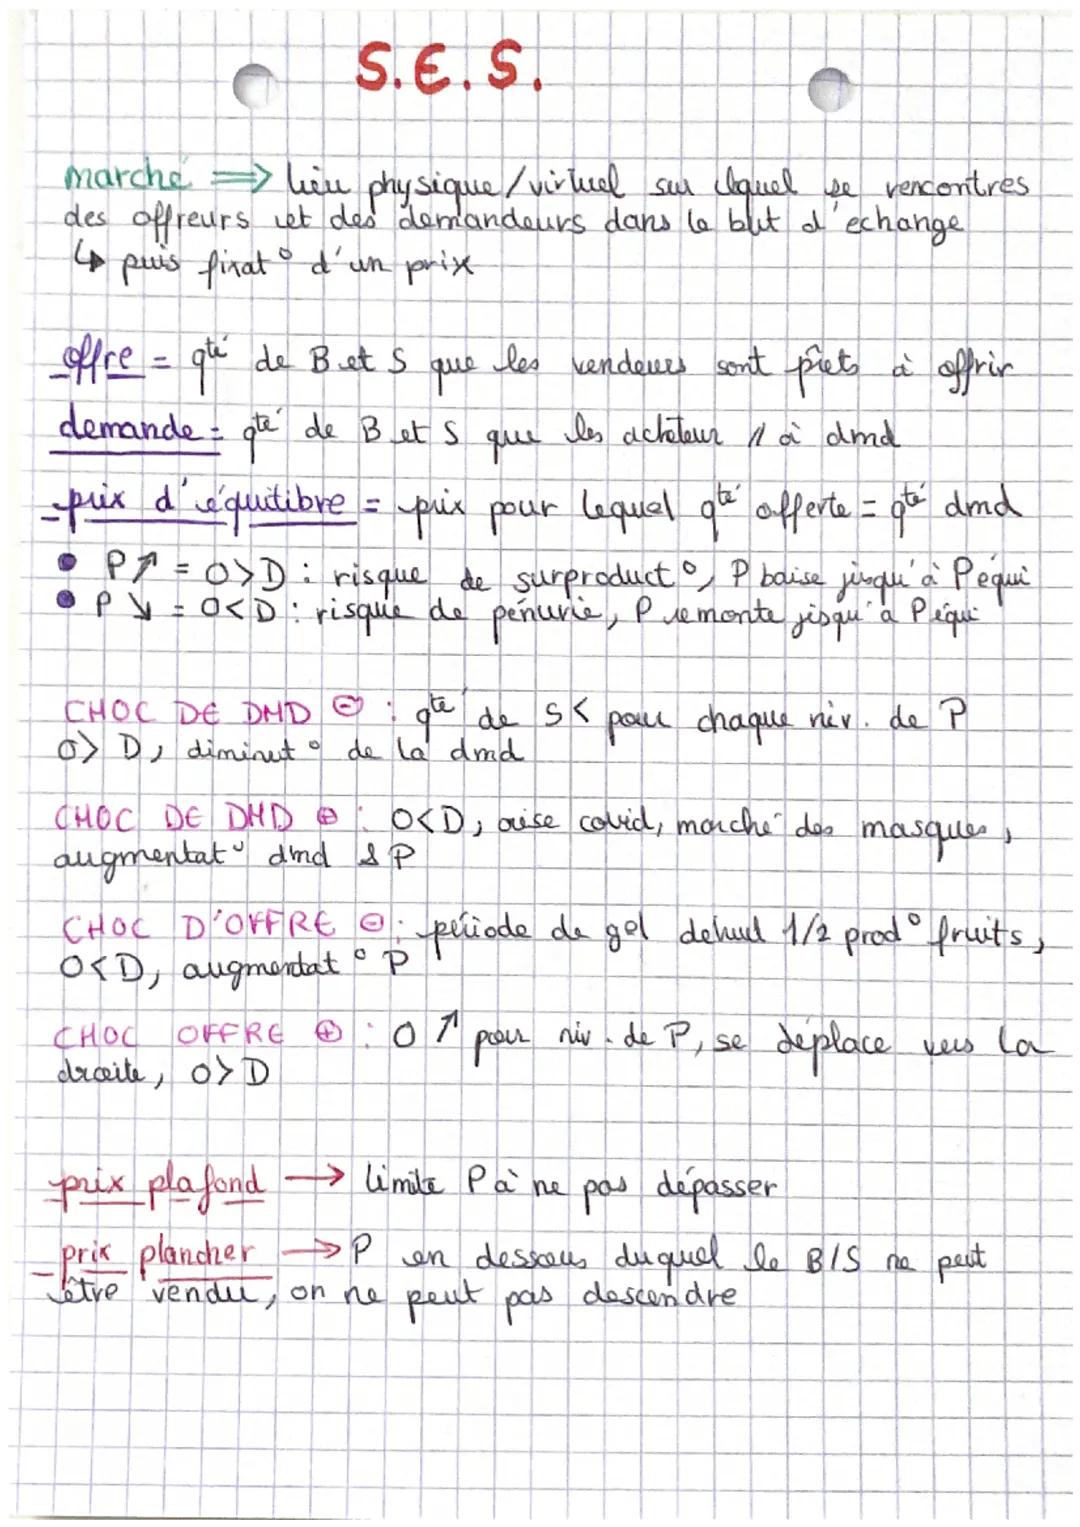 S.E.S.
marché => lieu physique/virtuel sur lequel se rencontres
des offreurs et des demandeurs dans le but d'echange
↳ puis fixat° d'un prix
offre = qté de B et S que les vendeurs sont prêts à offrir
demande = qté de B et S que les acheteur // à dmd
prix d'équilibre = prix pour lequel qté offerte = qté dmd
• P↗ = O>D : risque de surproduct°, P baise jusqu'à Péqui
• P↘ = O<D : risque de pénurie, P remonte jisqu'à Péqui
CHOC DE DMD ⊖ : qté de S< pour chaque niv. de P
O> D, diminut° de la dmd
CHOC DE DMD ⊕ : O<D, crise covid, marché des masques,
augmentat° dmd & P
CHOC D'OFFRE ⊖ : période de gel 1/2 prod° fruits,
O<D, augmentat° P
CHOC OFFRE ⊕ : O ↗ pour niv. de P, se déplace vers la
droite, O> D
prix plafond → limite P à ne pas dépasser
prix plancher → P en dessous duquel le B/S ne peut
être vendu, on ne peut pas descendre